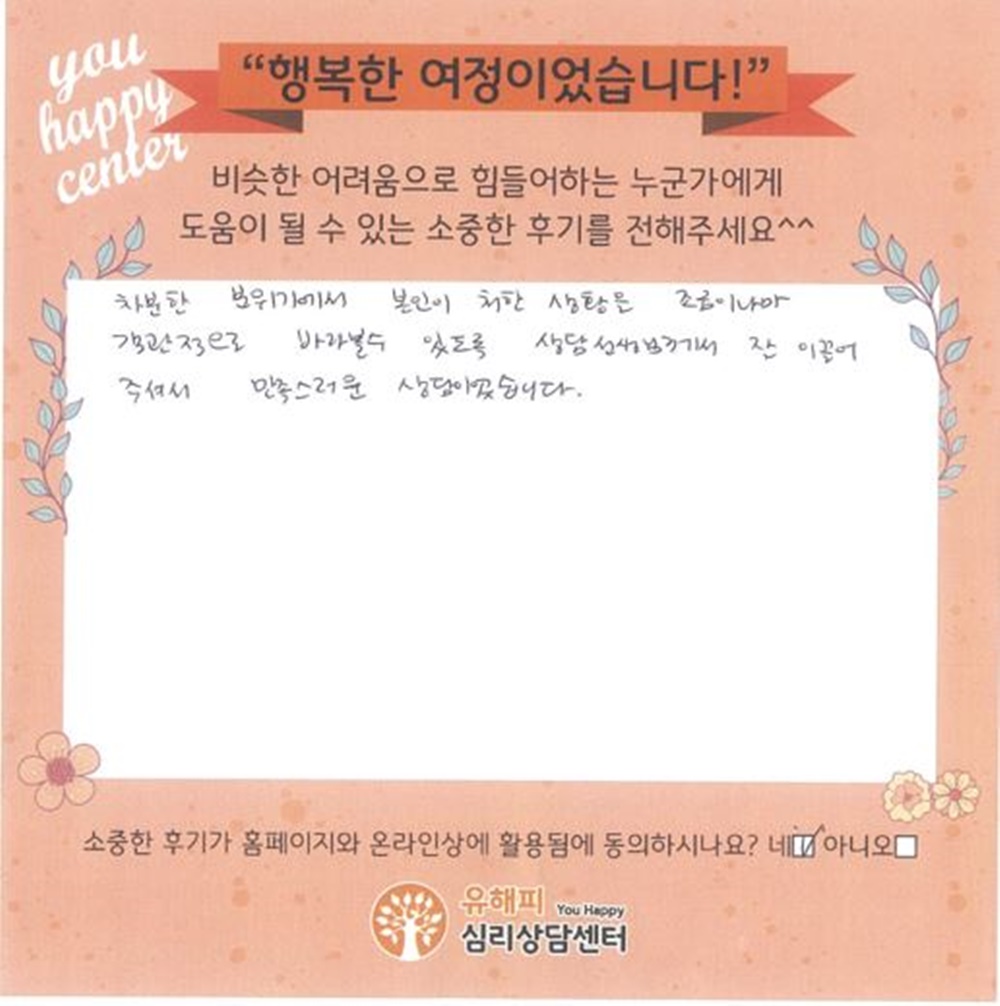 you
happy
center
“행복한 여정이었습니다!”
비슷한 어려움으로 힘들어하는 누군가에게
도움이 될 수 있는 소중한 후기를 전해주세요^^
차분한 분위기에서 본인이 처한 상황을 조금이나마
객관적으로 바라볼수 있도록 상담선생님께서 잘 이끌어
주셔서 만족스러운 상담이었습니다.
소중한 후기가 홈페이지와 온라인상에 활용됨에 동의하시나요? 네☑ 아니오☐
유해피 You Happy
심리상담센터